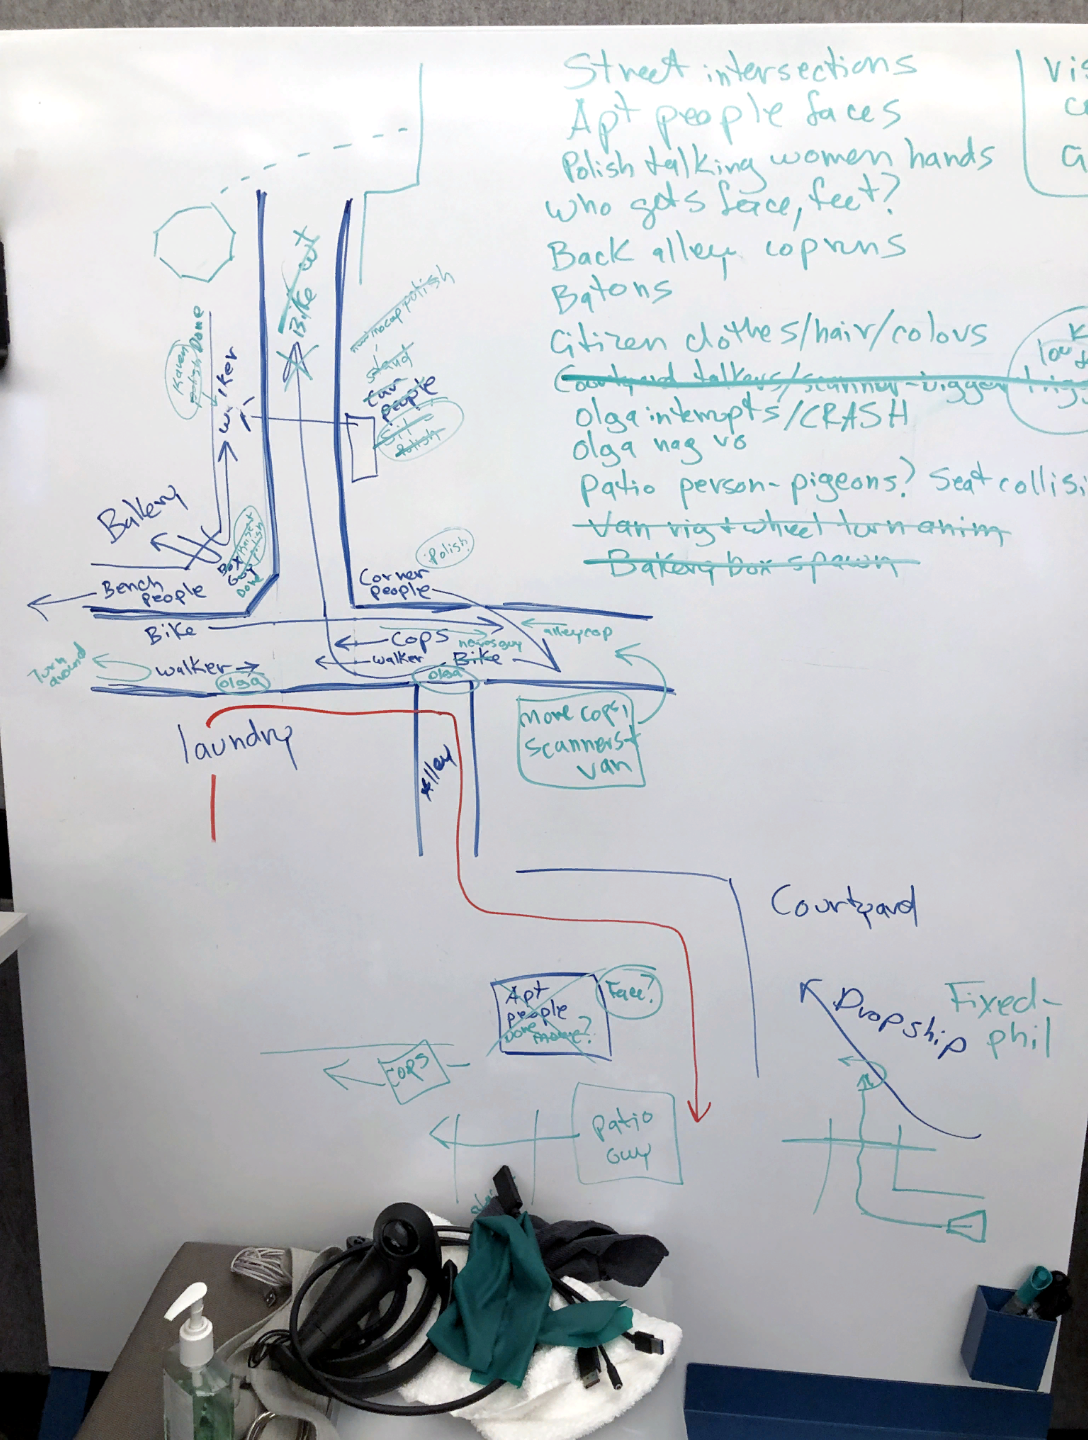 Street intersections
Apt people faces
Polish talking women hands
Who gets face, feet?
Back alley cop runs
Batons
Citizen clothes/hair/colors
Courtyard talkers/scanner-trigger
Olga interrupts/CRASH
Olga nag vo
Patio person-pigeons? Seat collisi
Van rig + wheel turn anim
Bakery box spawn
Vis
Bike out
Karen
polish Done
walker
mocap polish
stand
Car
people
Sit
Polish
Bakery
Box
Guy
Done
Polish
Bench
people
Corner
people
Bike
Cops
alley cop
Turn
around
walker
walker
Bike
Olga
Olga
laundry
Alley
Move cops,
scanners +
van
Courtyard
Apt
people
Done
more?
Face?
Dropship
Fixed-
phil
Cops
Patio
Guy